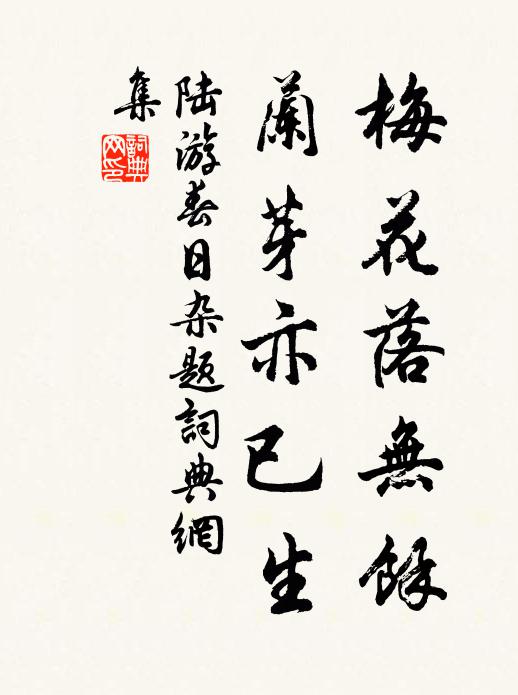 梅花落無餘
蘭芽亦已生
陆游春日杂题詞典網
集
詞典
网印